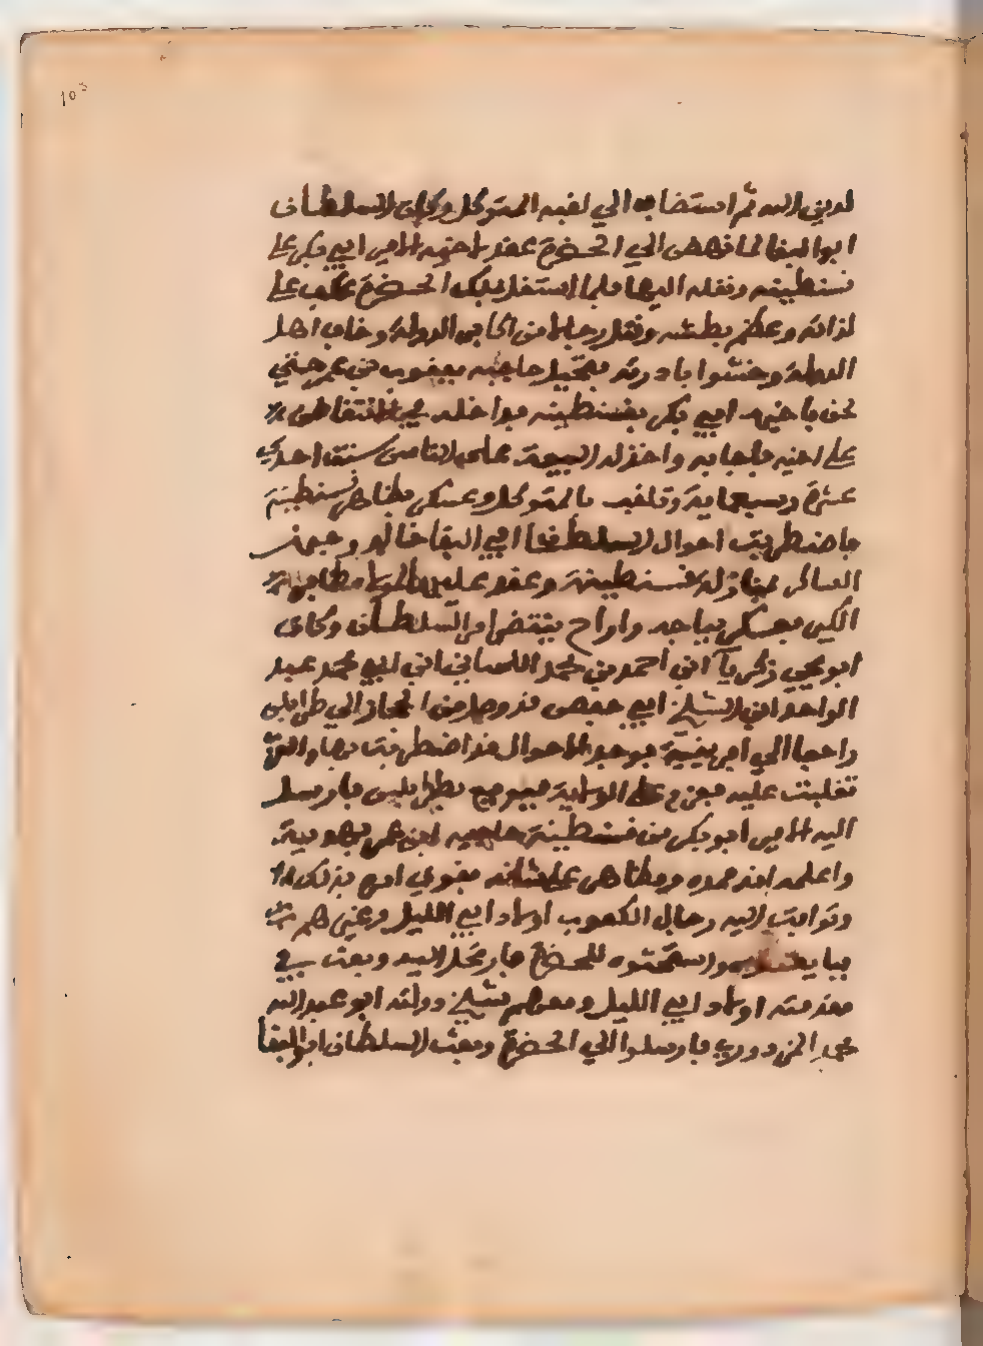 103
لدين الله ثم استضاف الي لقبه المتوكل وكان السلطان
ابو البقا لما نهض الي الحضرة عقد لاخيه الامير ابي بكر على
قسنطينه ونقله اليها فلما استقل بملك الحضرة عكف على
لذاته وعظم بطشه وقتل رجالا من اكابر الدولة وخاف اهل
الدولة وخشوا بادرته فتحيل حاجبه يعقوب بن عمر
باخيه ابي بكر بقسنطينه في الانتقاض
على اخيه فاجابه واخذ له البيعة على الناس سنة احدي
عشرة وسبعماية وتلقب بالمتوكل وعسكر بظاهر قسنطينة
فاضطربت احوال السلطان ابي البقا خالد وجهز
العساكر لمنازلة قسنطينة وعقد عليها لمولاه ظافر
الكبير فعسكر بباجه واراح ينتظر امر السلطان وكان
ابو يحيي زكرياء ابن احمد بن محمد اللحياني ابن ابي محمد عبد
الواحد ابن الشيخ ابي حفص قد وصل من الحجاز الي طرابلس
راجعا الي افريقية فوجد الاحوال قد اضطربت بها
عليه فعزم على الولاية فبويع بطرابلس فارسل
اليه الامير ابو بكر من قسنطينة حاجبه ابن عمر بهدية
واعلمه انه ممده ومظاهر على شانه فقوي امره بذلك
وتوافت اليه رجال الكعوب اولاد ابي الليل وغيرهم
فبايعوه واستحثوه للحضرة فارتحل اليه وبعث في
مقدمته اولاد ابي الليل ومعهم شيخ دولته ابو عبد الله
المزدوري فارسلوا الي الحضرة وبعث السلطان ابو البقا